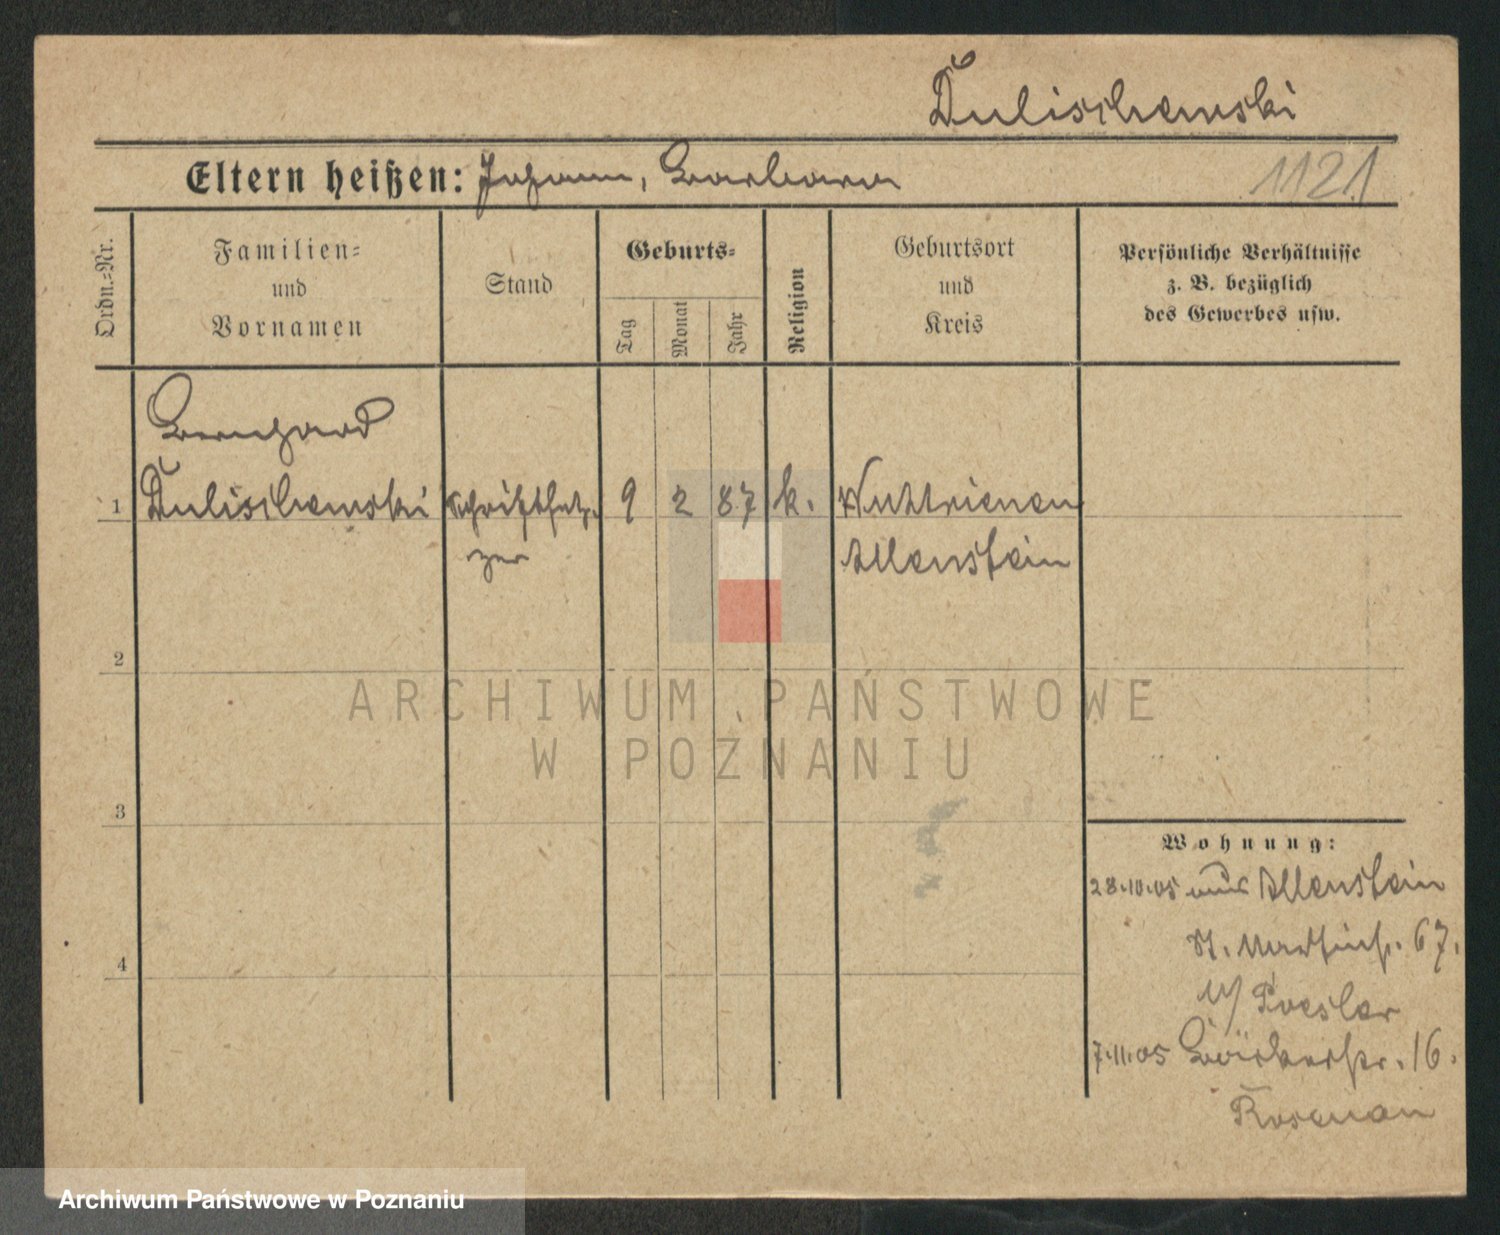 Dulischewski
Eltern heißen: Johann, Barbara
1121
Ordn.-Nr.
Familien-
und
Vornamen
Stand
Geburts-
Tag
Monat
Jahr
Religion
Geburtsort
und
Kreis
Persönliche Verhältnisse
z. B. bezüglich
des Gewerbes usw.
Bernhard
1 Dulischewski Schriftset- 9 2 87 k. Wuttrienen
zer Allenstein
2
ARCHIWUM PAŃSTWOWE
W POZNANIU
3
Wohnung:
28.10.05 aus Allenstein
St. Martinstr. 67.
b/ Roesler
4
7.11.05 Bäckerstr. 16.
Rosenau
Archiwum Państwowe w Poznaniu